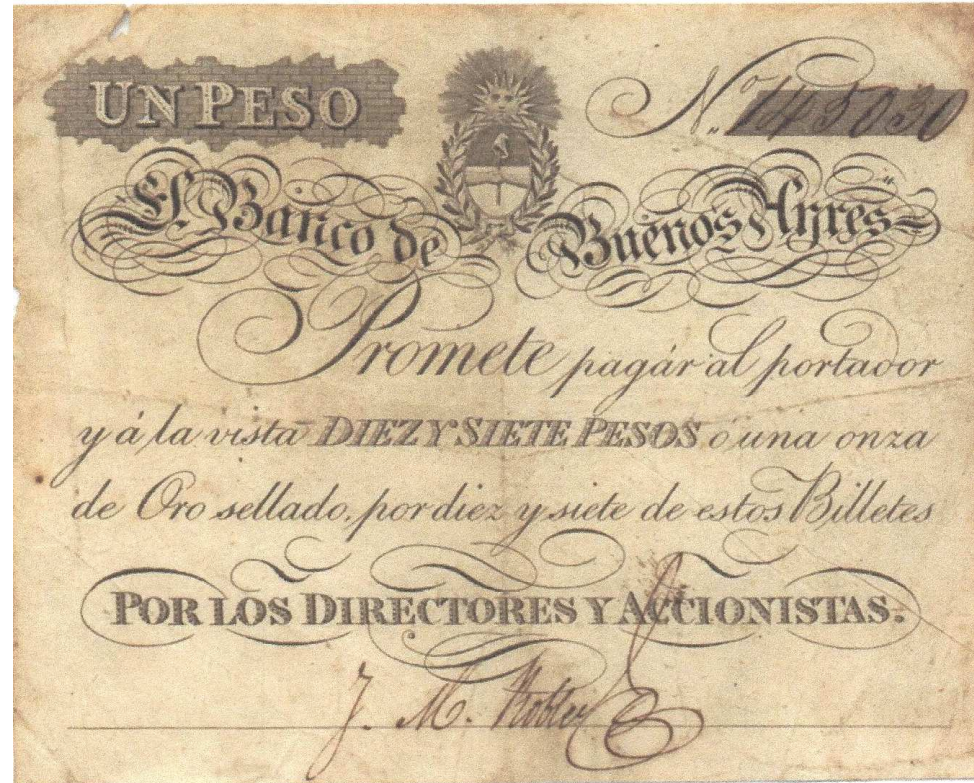 UN PESO
Nº 145030
El Banco de Buenos Ayres
Promete pagár al portador
y á la vista DIEZ Y SIETE PESOS o una onza
de Oro sellado, por diez y siete de estos Billetes
POR LOS DIRECTORES Y ACCIONISTAS.
J. M.